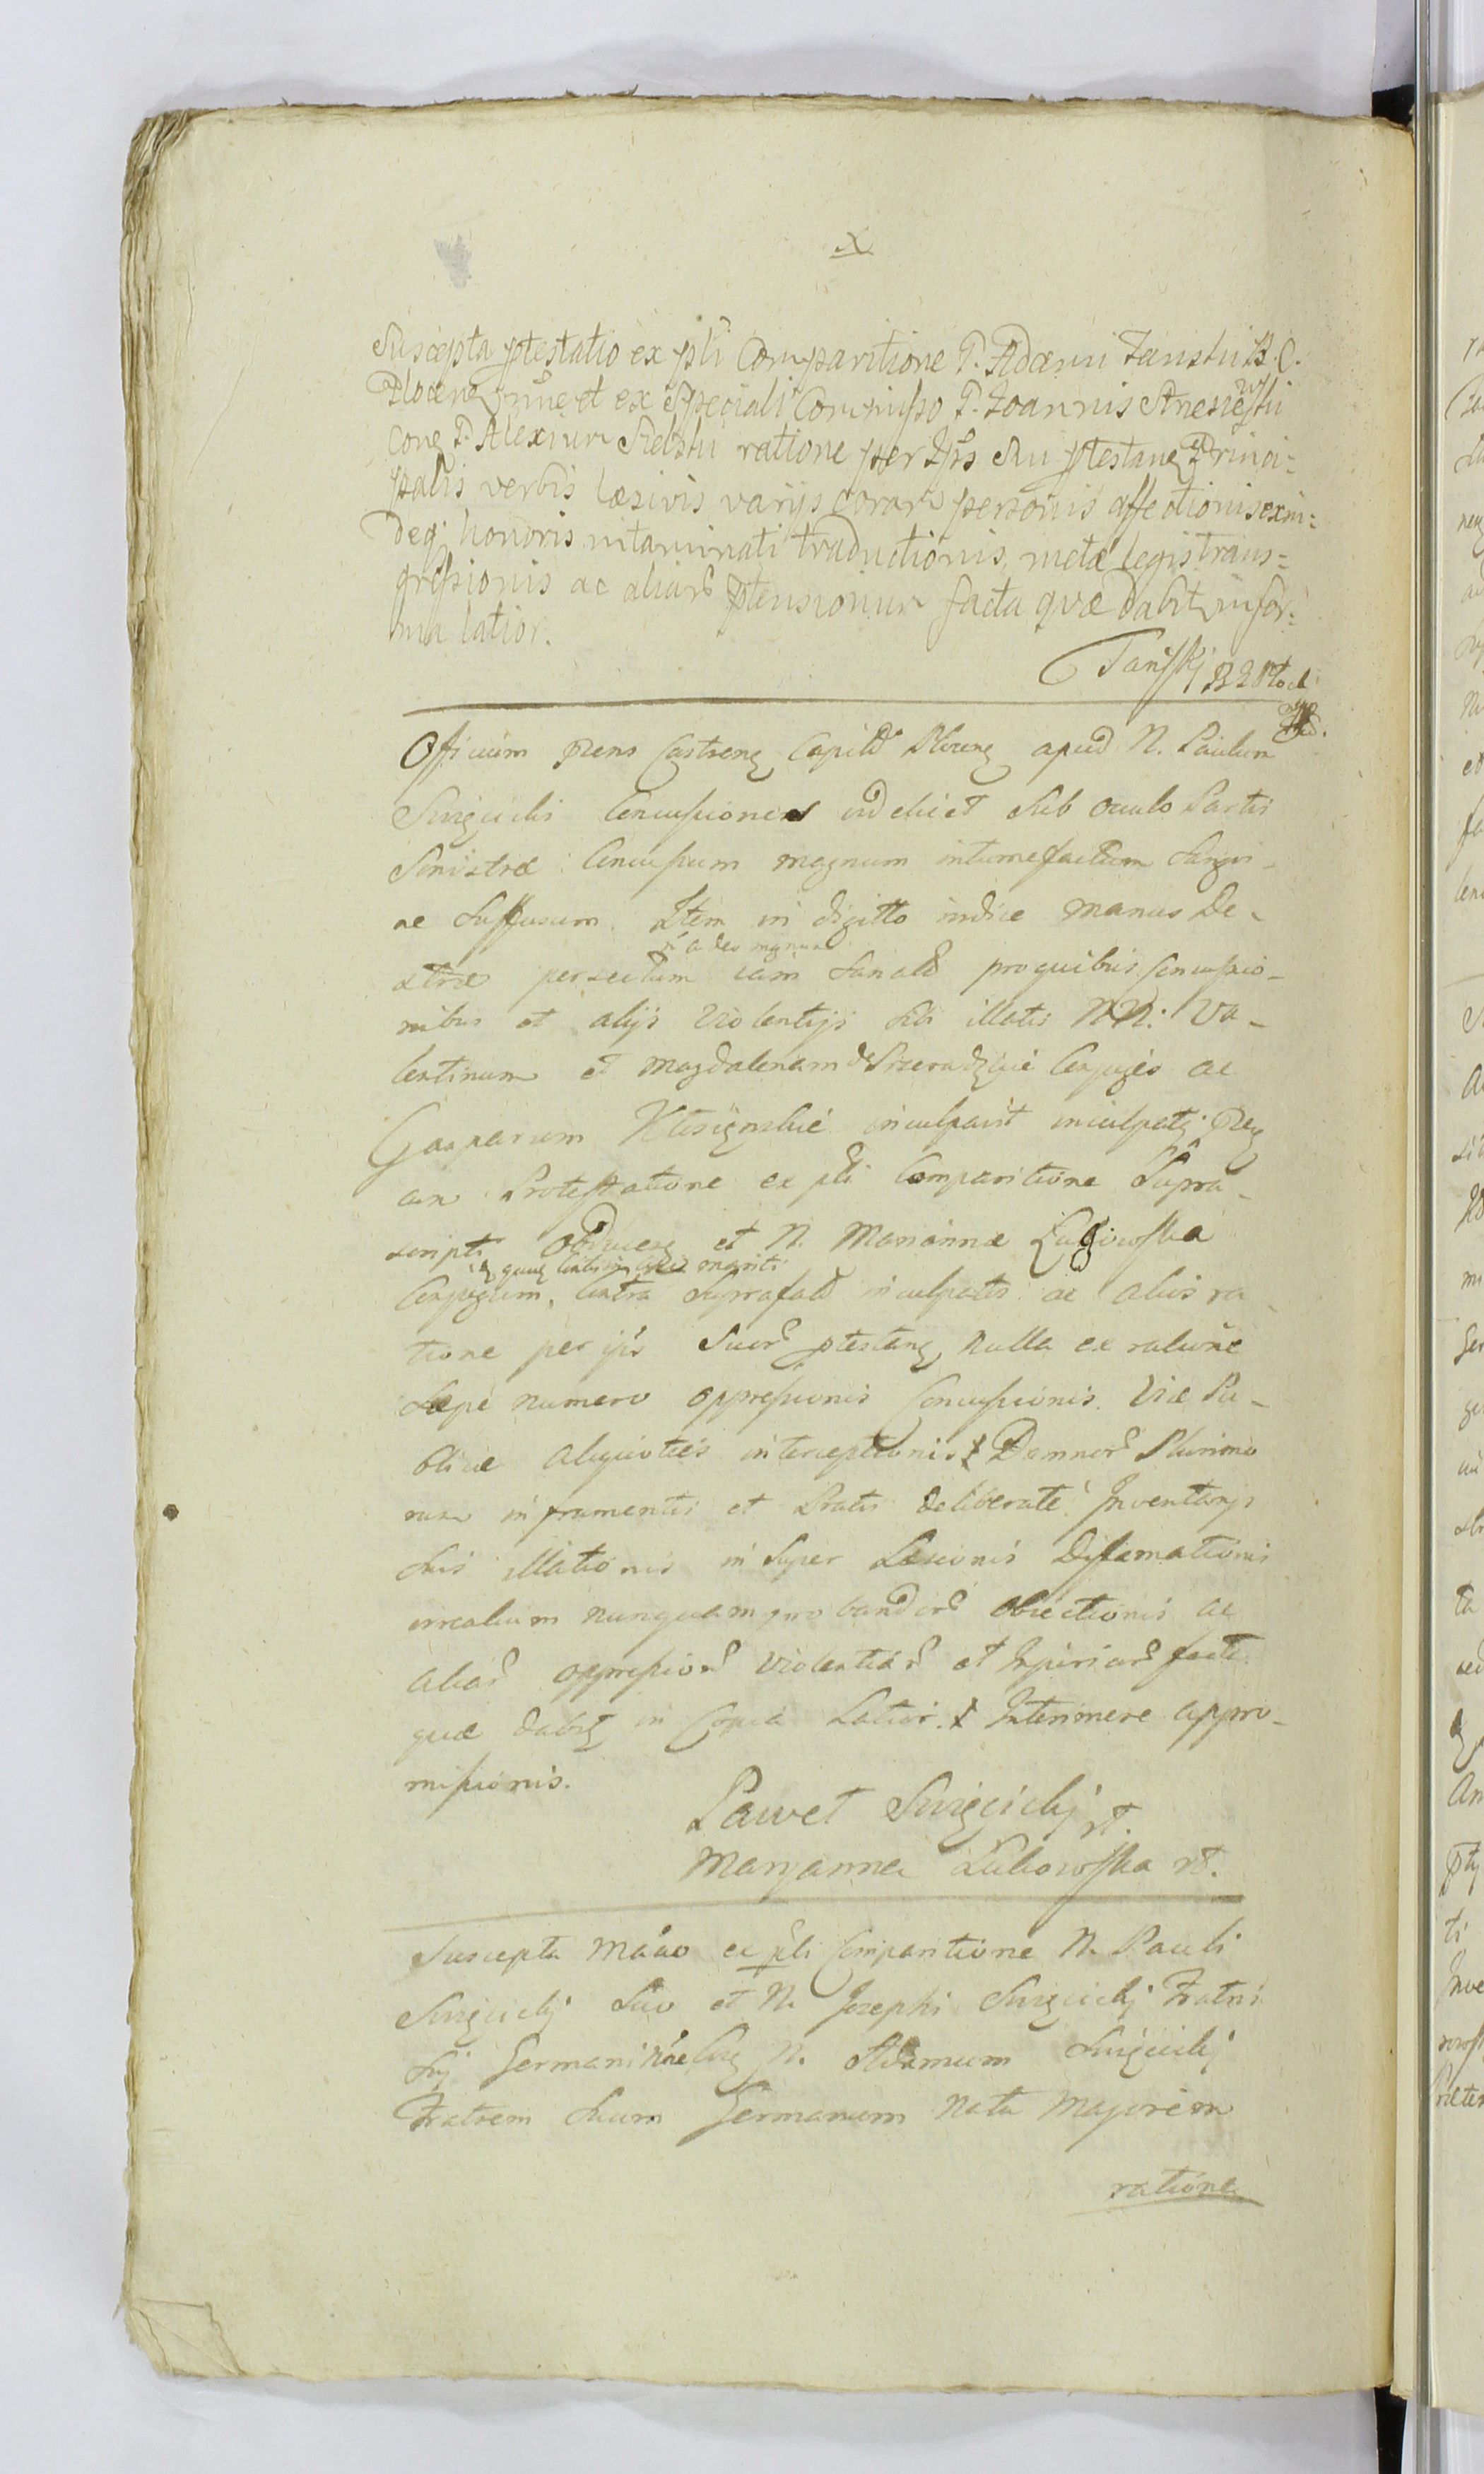 X
Suscepta ptestatio ex pli Comparitione P. Adami Tanski B. C.
Plocen nne et ex Speciali Commisso P. Joannis
Cone P. Alexium ratione per Ips Sui ptestane Princi=
palis verbis læsivis varijs coram personis affectionis exin=
deq honoris intaminati traductionis, metæ legis trans=
gressionis ac aliar ptensionum facta quæ dabit in for=
ma latior.
Tanskj B C Plock
Officium Prens Castren Capitl Plocen apud N. Paulum
Swięcicki Concussiones videlicet Sub oculo Partis
Sinistræ Concussum magnum intumefactum Sangvi-
ne Suffusum. Item in digitto indice manus De-
n adeo magnum
xtræ persectum iam Sanatu pro quibus Concussio-
nibus et alijs Violentijs sibi illatis NN: Va-
lentinum et Magdalenam de Conjuges ac
Gasparum inculpavit inculpat Pre
an Protestatione ex pli Comparitione Supra-
scripti et N. Marianna Łukowska
mariti
Conjugum, Contra Suprafat inculpatos ac alios ra-
tione per ips Suor ptestan nulla ex ratione
Sæpe numero oppressionis Concussionis. Viæ Pu-
blicæ aliquoties interceptionis Damnor Plurimo
rum in frumentis et Pratis deliberate Inventarijs
Suis illationis in Super Læsionis Difamationis
irrealium nunquam probandor obiectionis ac
aliar oppression Violentiar et Injuriar facti
quæ dabit in Copia Latior. Interimere appro-
missionis.
Paweł Swięcickj rt.
Maryanna Łukowska rt.
Suscepta Mãao ex pli Comparitione N. Pauli
Swięcickj Suo et N. Josephi Swięcickj Fratris
Sui Germani nne Con N. Adamum Swięcickj
Fratrem Suum Germanum Natu Majorem
ratione